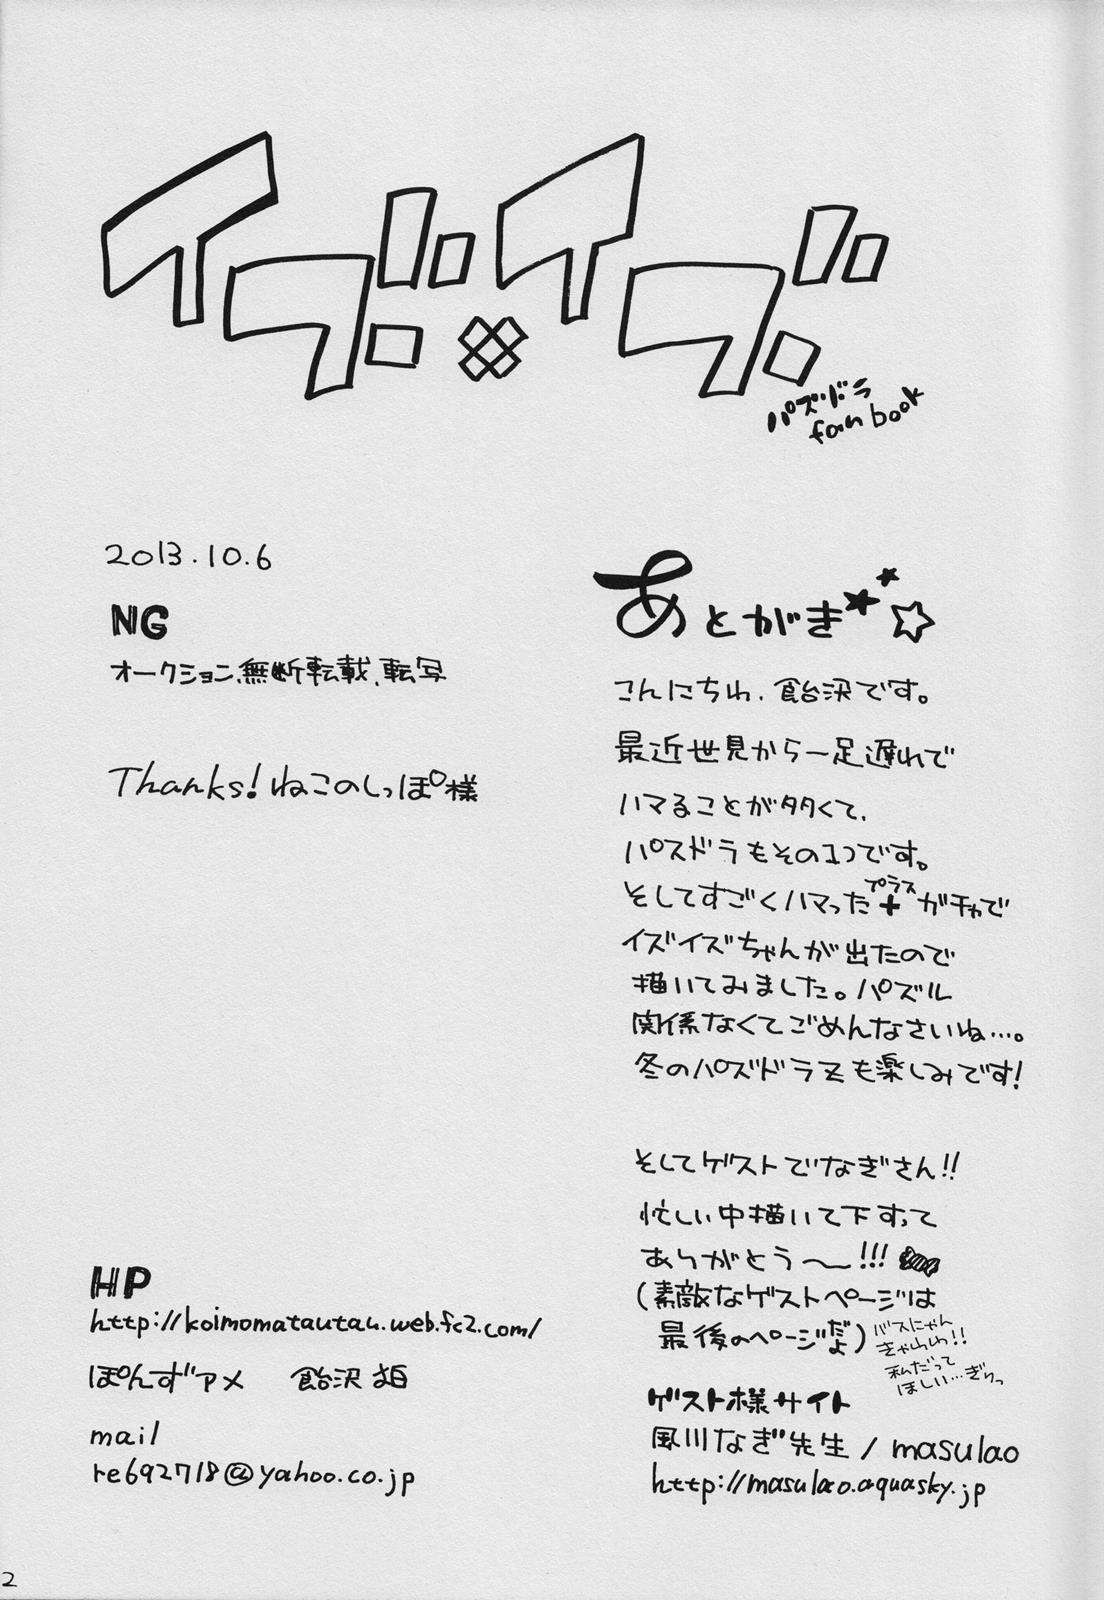 イヴ×イヴ
パズドラ
fan book
2013.10.6
NG
オークション、無断転載、転写
Thanks! ねこのしっぽ様
HP
http://koimomatautau.web.fc2.com/
ぽんずアメ 飴沢
mail
re692718@yahoo.co.jp
あとがき
こんにちわ、飴沢です。
最近世見から一足遅れで
ハマることが多くて、
パスドラもその1つです。
そしてすごくハマった+ガチャで
プラス
イズイズちゃんが出たので
描いてみました。パズル
関係なくてごめんなさいね…。
冬のパズドラZも楽しみです!
そしてゲストでなぎさん!!
忙しい中描いて下すって
ありがとう〜!!!
(素敵なゲストページは
最後のページだよ)
バスにゃん
きゃわわ!!
私だって
ほしい…ぎりっ
ゲスト様サイト
風川なぎ先生 / masulao
http://masulao.aquasky.jp
2